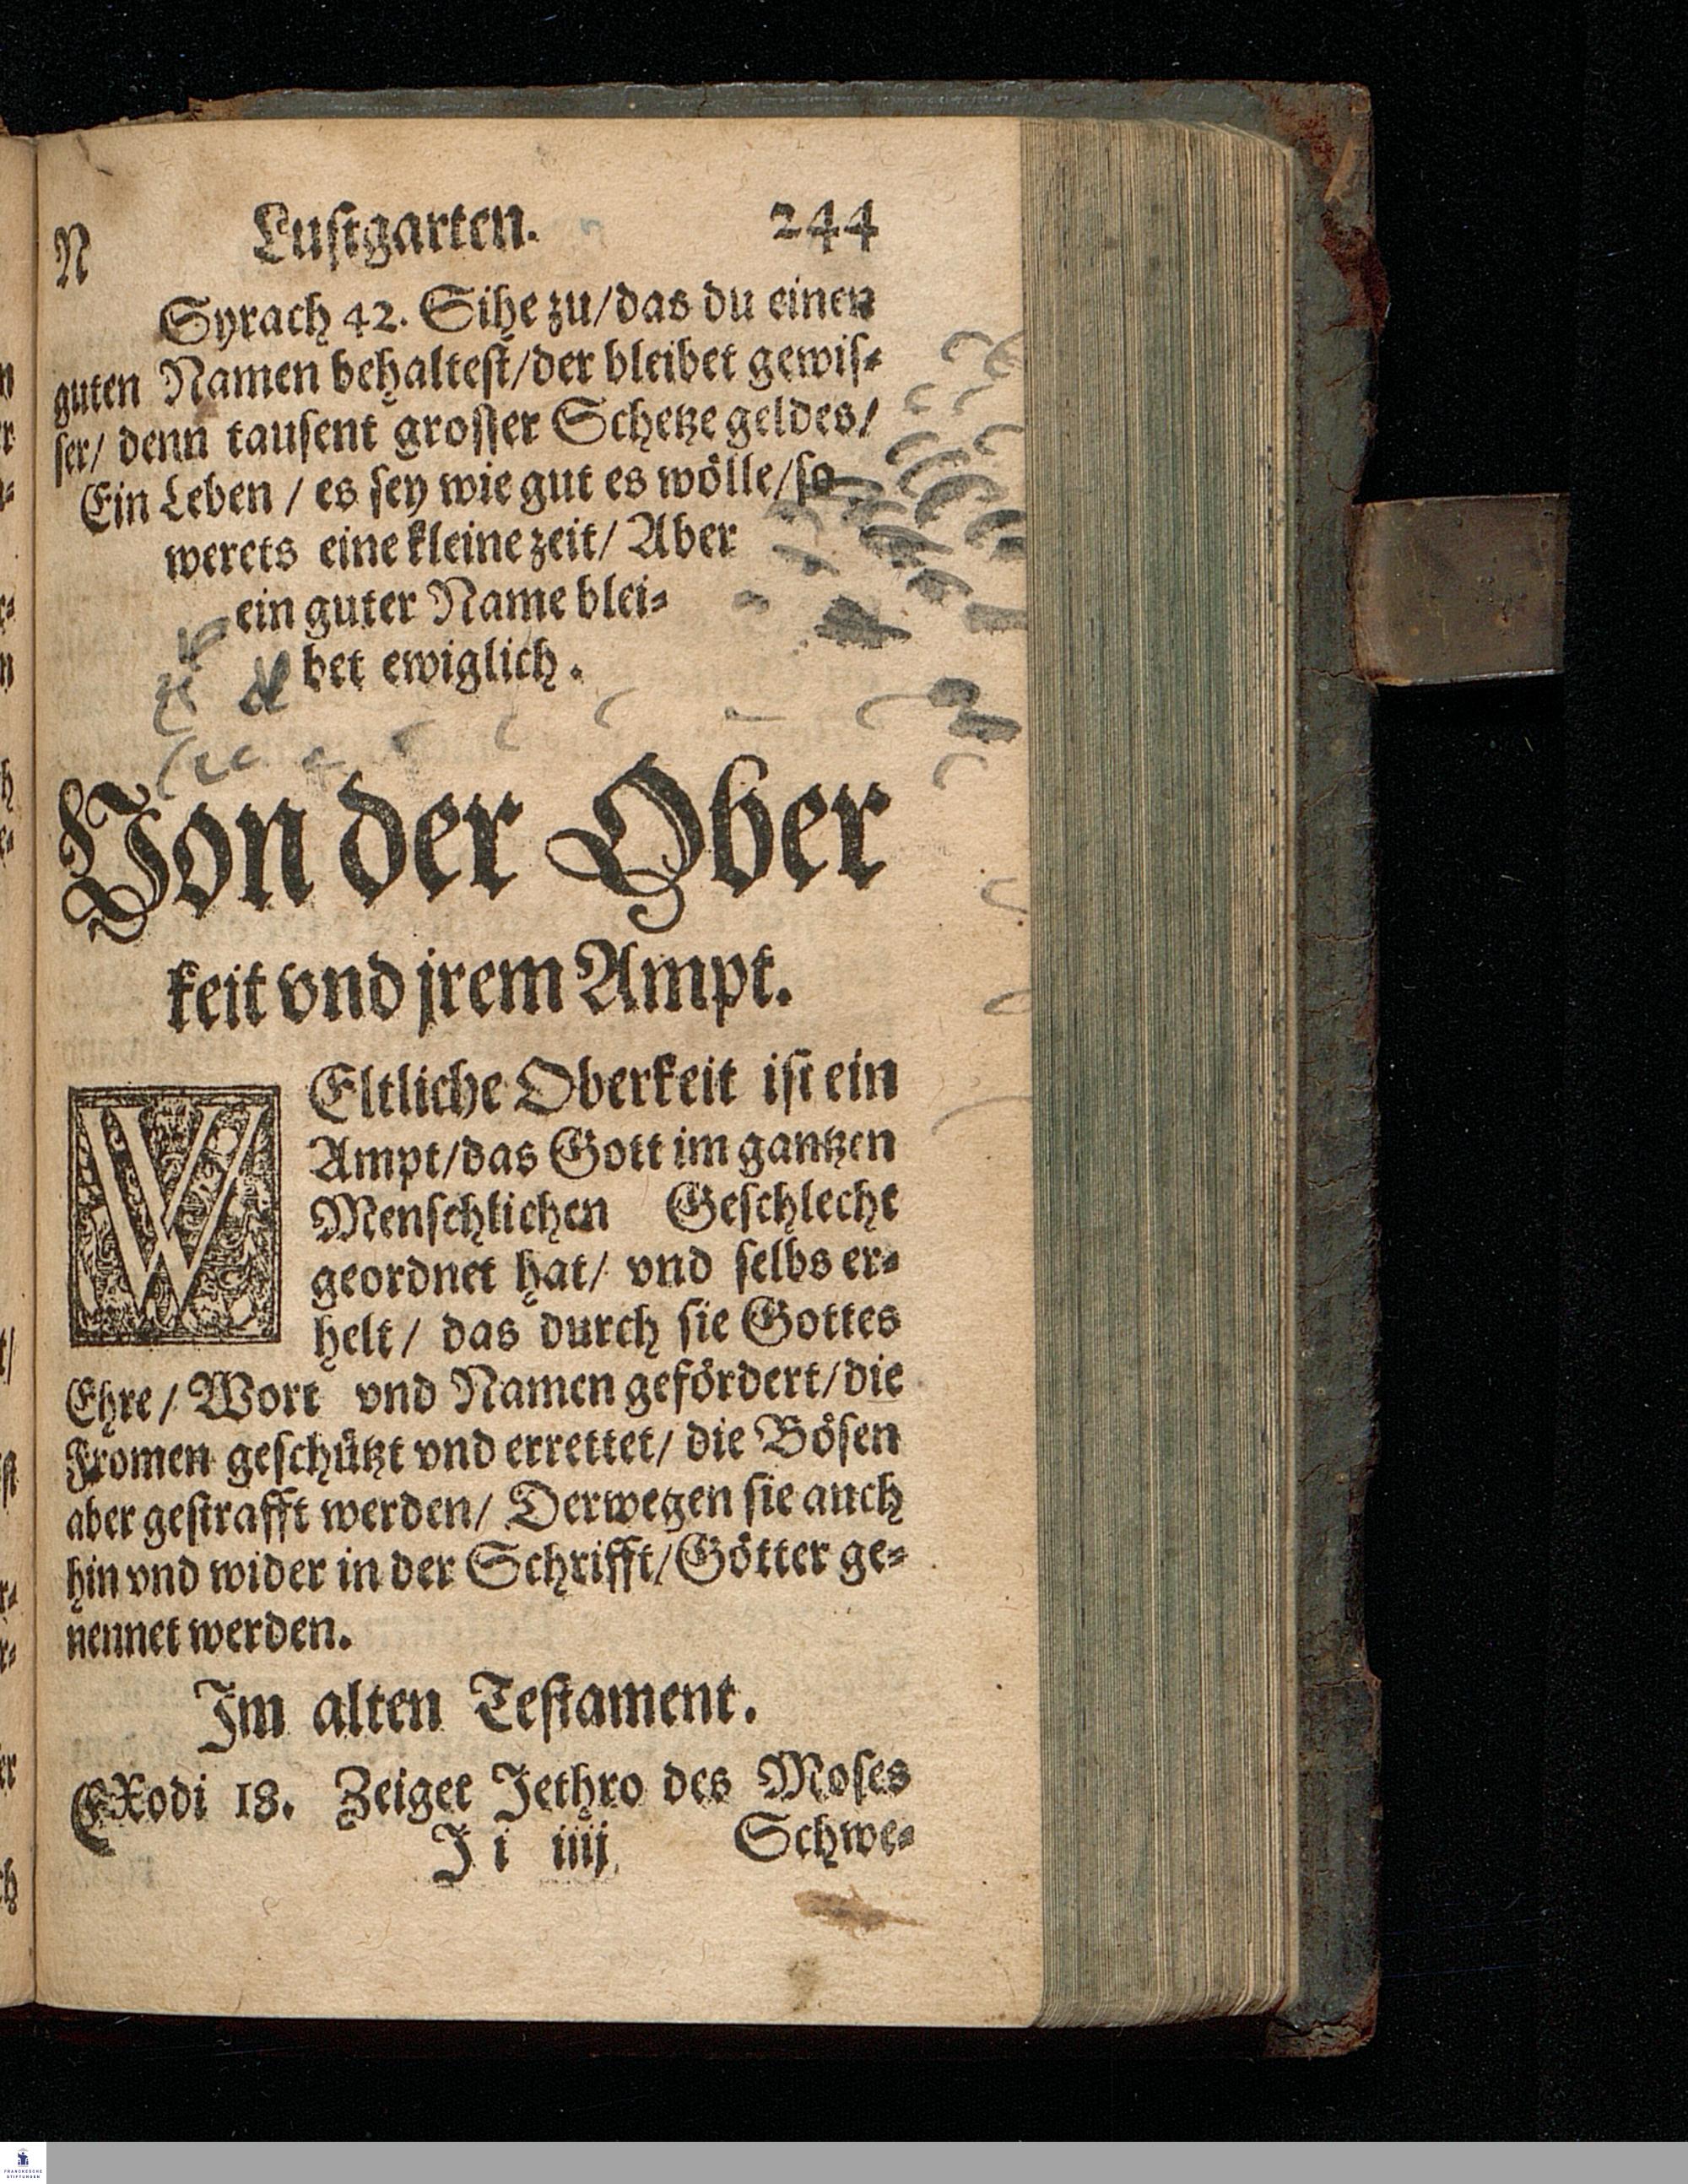 N Lustgarten. 244
Syrach 42. Sihe zu/das du einen
guten Namen behaltest/der bleibet gewis⸗
ser/ denn tausent grosser Schetze geldes/
Ein Leben / es sey wie gut es wölle/so
werets eine kleine zeit/ Aber
ein guter Name blei⸗
bet ewiglich.
Von der Ober
keit vnd jrem Ampt.
WEltliche Oberkeit ist ein
Ampt/das Gott im gantzen
Menschlichen Geschlecht
geordnet hat/ vnd selbs er⸗
helt/ das durch sie Gottes
Ehre/ Wort vnd Namen gefördert/die
Fromen geschützt vnd errettet/ die Bösen
aber gestrafft werden/ Derwegen sie auch
hin vnd wider in der Schrifft/Götter ge⸗
nennet werden.
Im alten Testament.
EXodi 18. Zeiget Jethro des Moses
I i iiij Schwe⸗
FRANCKESCHE
STIFTUNGEN